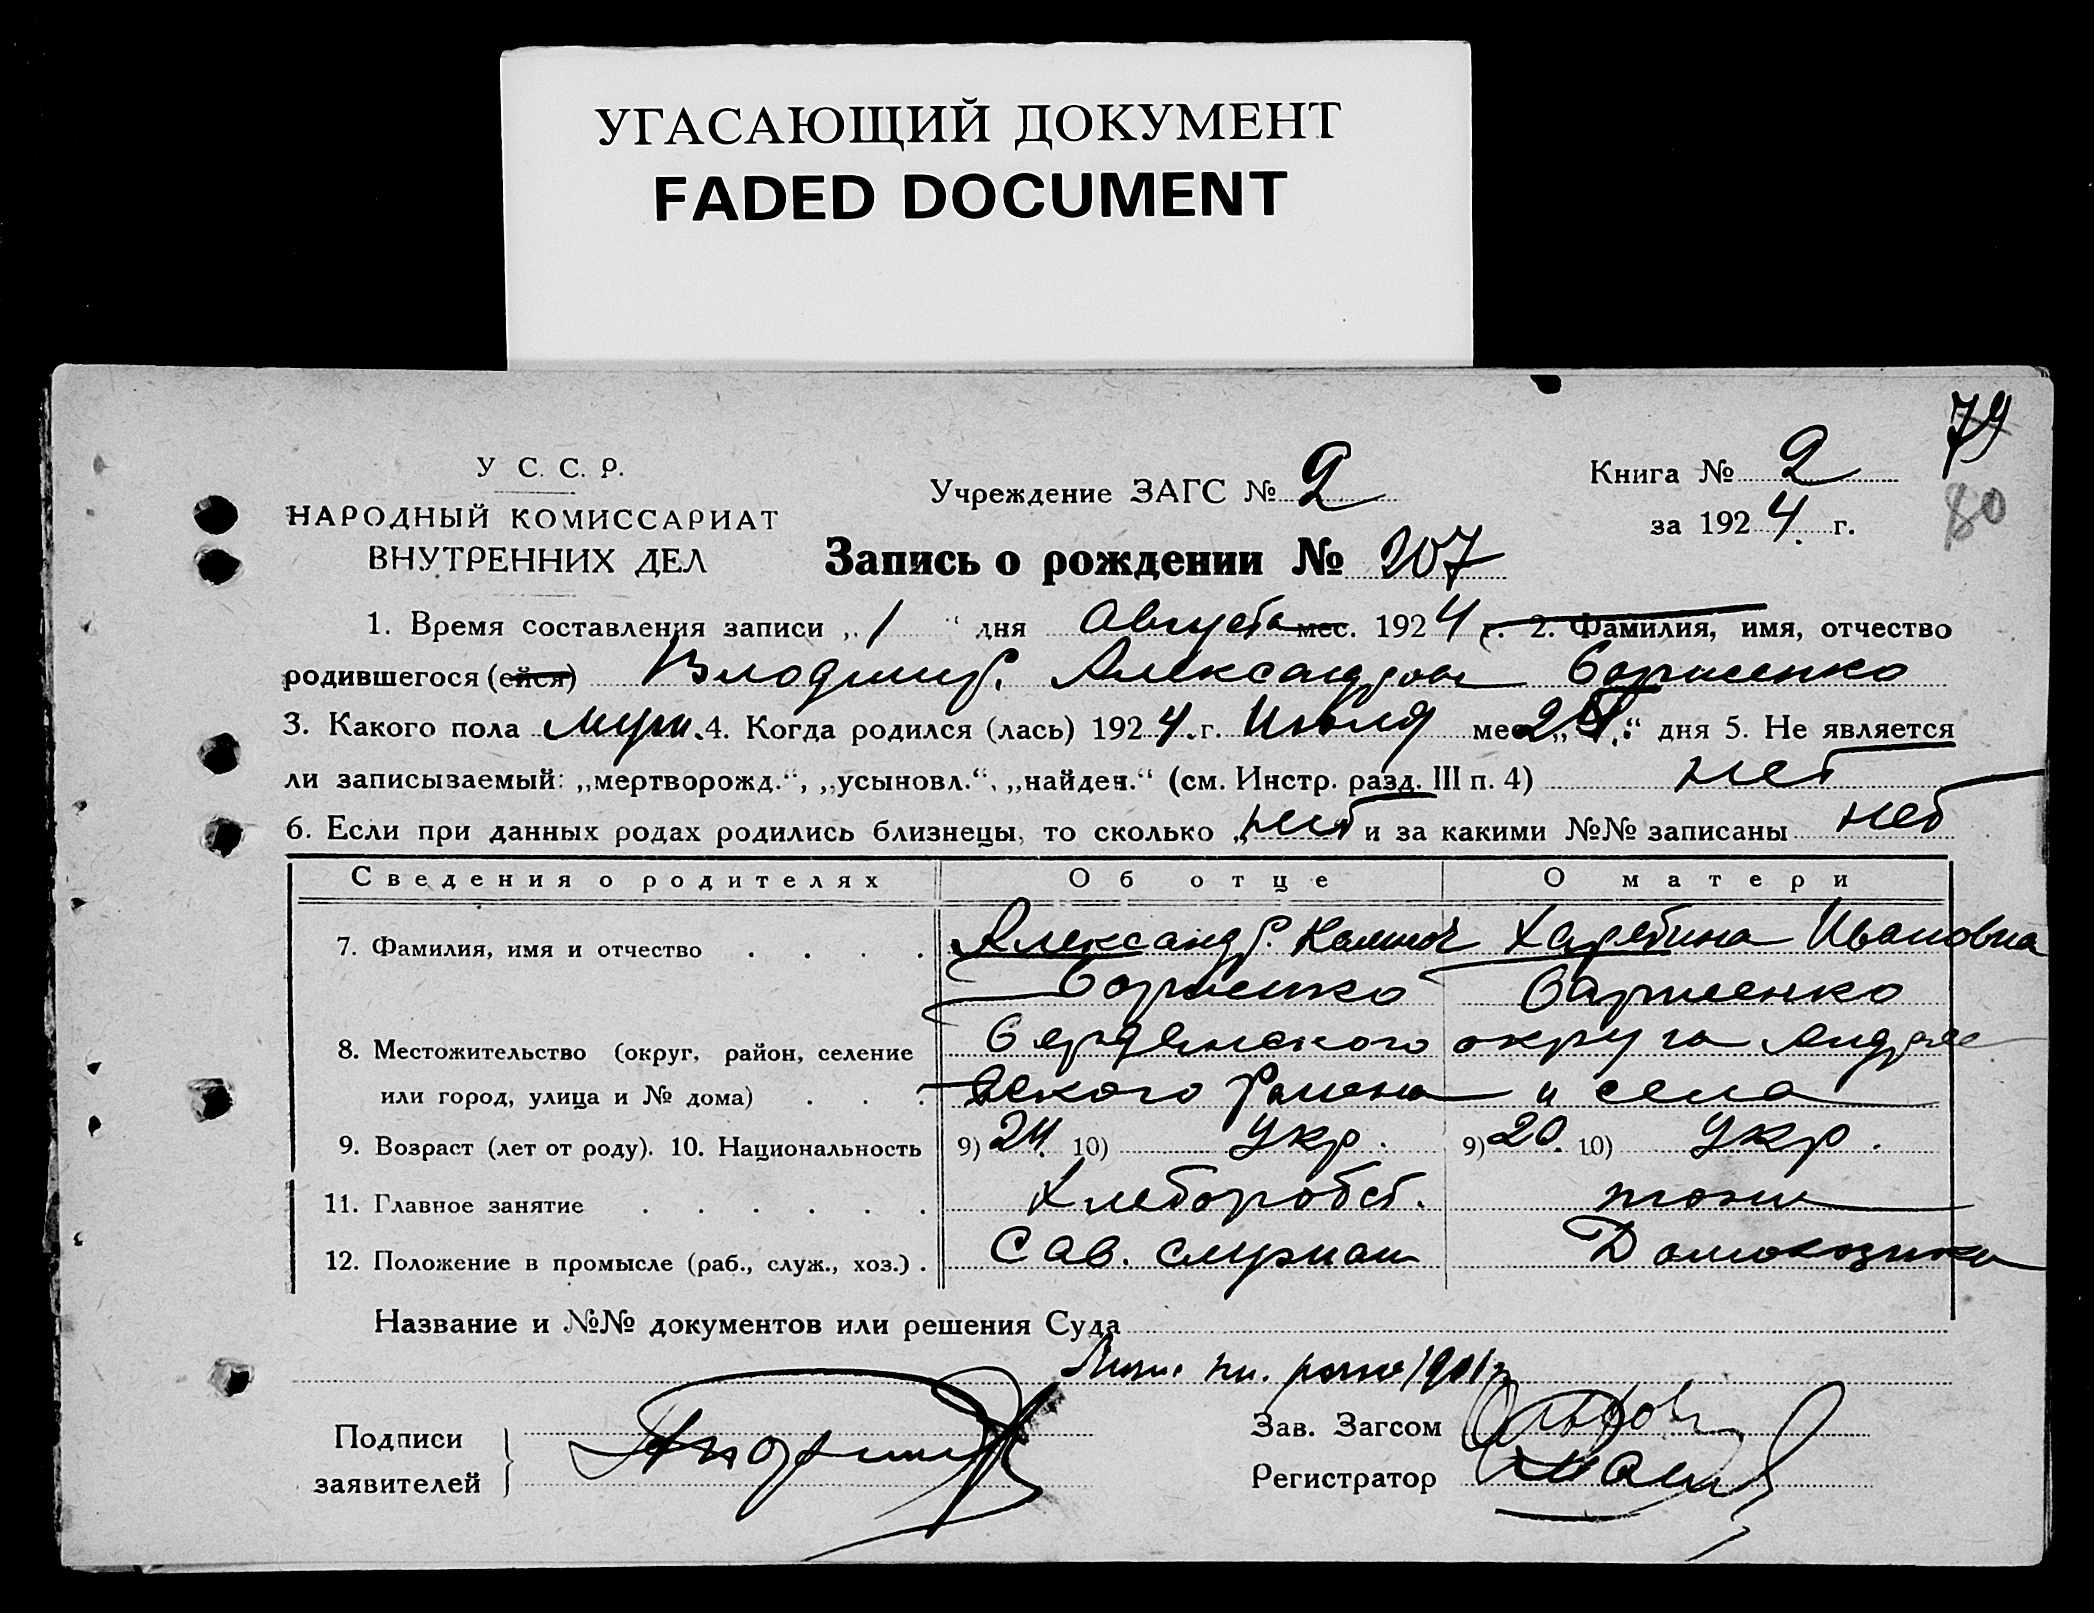 УГАСАЮЩИЙ ДОКУМЕНТ
FADED DOCUMENT
79
80
У С. С. Р.
НАРОДНЫЙ КОМИССАРИАТ
ВНУТРЕННИХ ДЕЛ
Учреждение ЗАГС № 2
Книга № 2
за 1924 г.
Запись о рождении № 207
1. Время составления записи „1“ дня Августа мес. 1924 г. 2. Фамилия, имя, отчество
родившегося (ейся) Владимир. Александров
3. Какого пола муж. 4. Когда родился (лась) 1924 г. Июля мес. „ “ дня 5. Не является
ли записываемый: „мертворожд.“, „усыновл.“, „найден.“ (см. Инстр. разд. III п. 4) нет
6. Если при данных родах родились близнецы, то сколько „нет и за какими №№ записаны нет
Сведения о родителях Об отце О матери
7. Фамилия, имя и отчество . . . . Александр. Харитина Ивановна
8. Местожительство (округ, район, селение Бердянского округа Андрее
или город, улица и № дома) . . . вского района и села
9. Возраст (лет от роду). 10. Национальность 9) 24. 10) Укр. 9) 20. 10) Укр.
11. Главное занятие . . . . . . Хлеборобст. тоже
12. Положение в промысле (раб., служ., хоз.) . Сов. служащ Домохозяйка
Название и №№ документов или решения Суда
Подписи
заявителей
Зав. Загсом
Регистратор